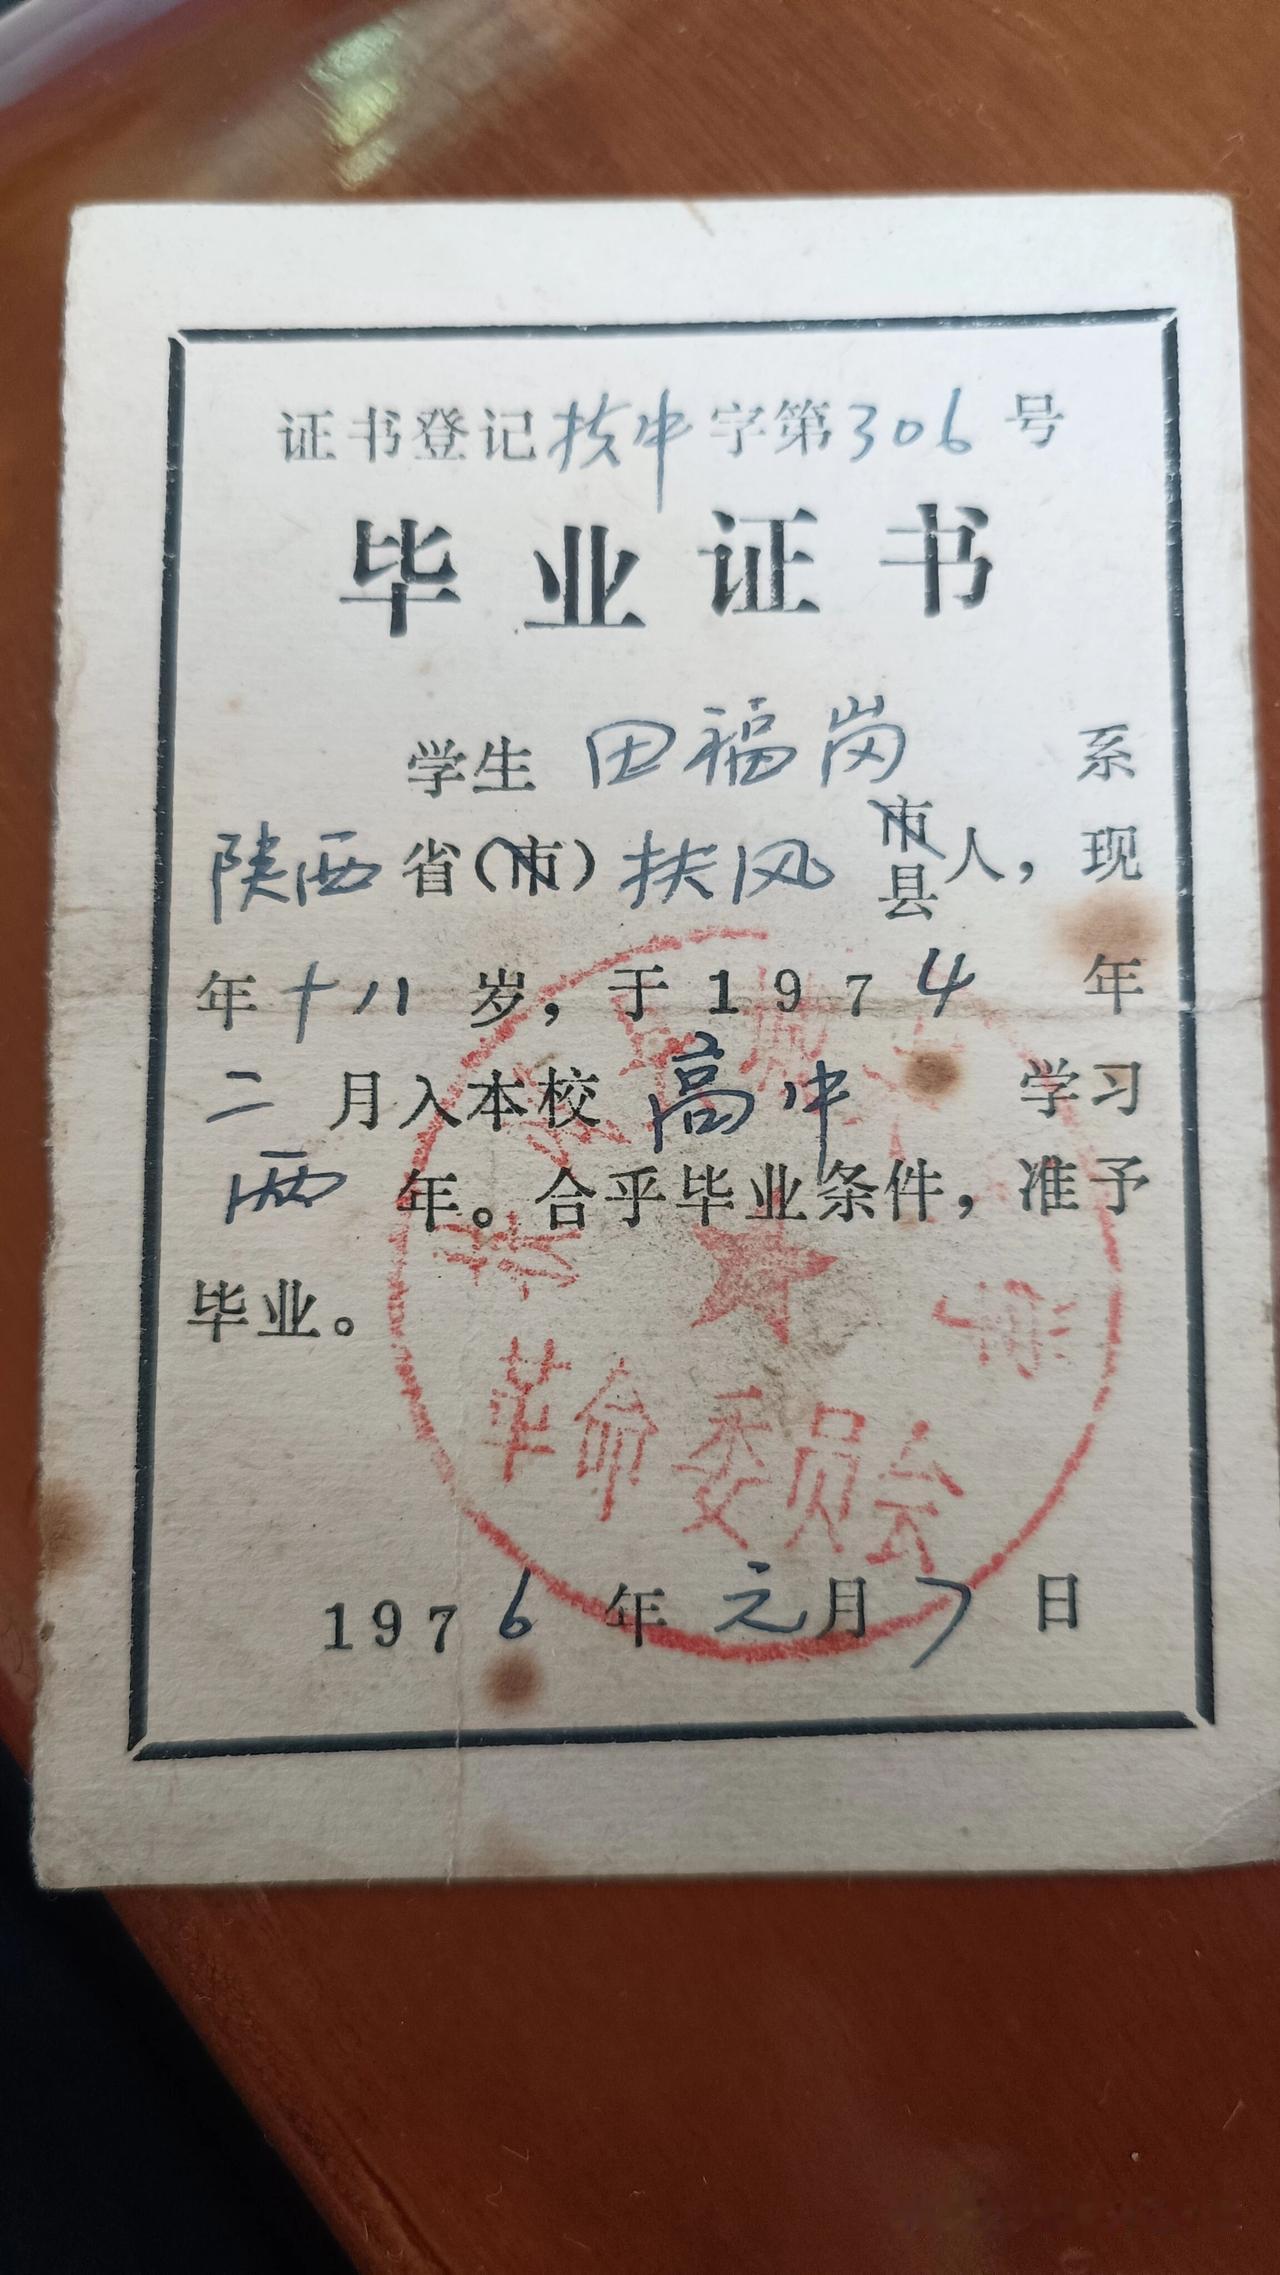 证书登记扶中字第306号
毕业证书
学生 田福岗 系
陕西省(市)扶风市县人,现
年十八岁,于1974年
二月入本校高中学习
两年。合乎毕业条件,准予
毕业。
革命委员会
1976年元月7日